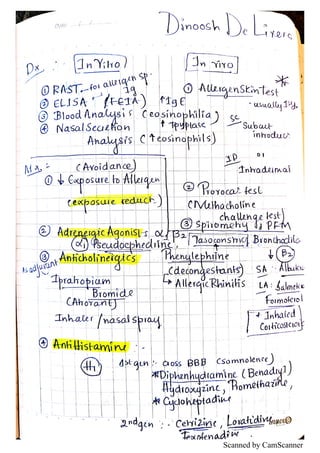 Dinoosh De Livera
Dx
In Vitro
In vivo
① RAST - for allergen sp. Ig
② ELISA (FEIA) ↑IgE
③ Blood Analysis (eosinophilia)
↑ Tryptase
④ Nasal Secretion
Analysis (↑eosinophils)
① Allergen Skin test
- usually 1st.
SC
Subcut
introduct
ID
or
Intradermal
② Provocat test
(Methacholine
challenge test)
③ Spirometry ↓ PFM
(Avoidance)
① ↓ Exposure to Allergen
(exposure reduct)
② Adrenergic Agonist α/β2
α1 Pseudoephedrine,
Phenylephrine
(decongestants)
↳ Allergic Rhinitis
Vasoconstrict
Bronchodila
↓ β2
SA
LA : Salmete
Formoterol
+ Inhaled
Corticosteroi
③ Anticholinergics
Ipratropium
Bromide
Inhaler / nasal spray
④ Antihistamine
H1
1st gen :- cross BBB (somnolence)
*Diphenhydramine (Benadryl)
Hydroxyzine, Promethazine,
* Cyproheptadine
2nd gen :- Cetrizine, Loratidine
Scanned by CamScanner